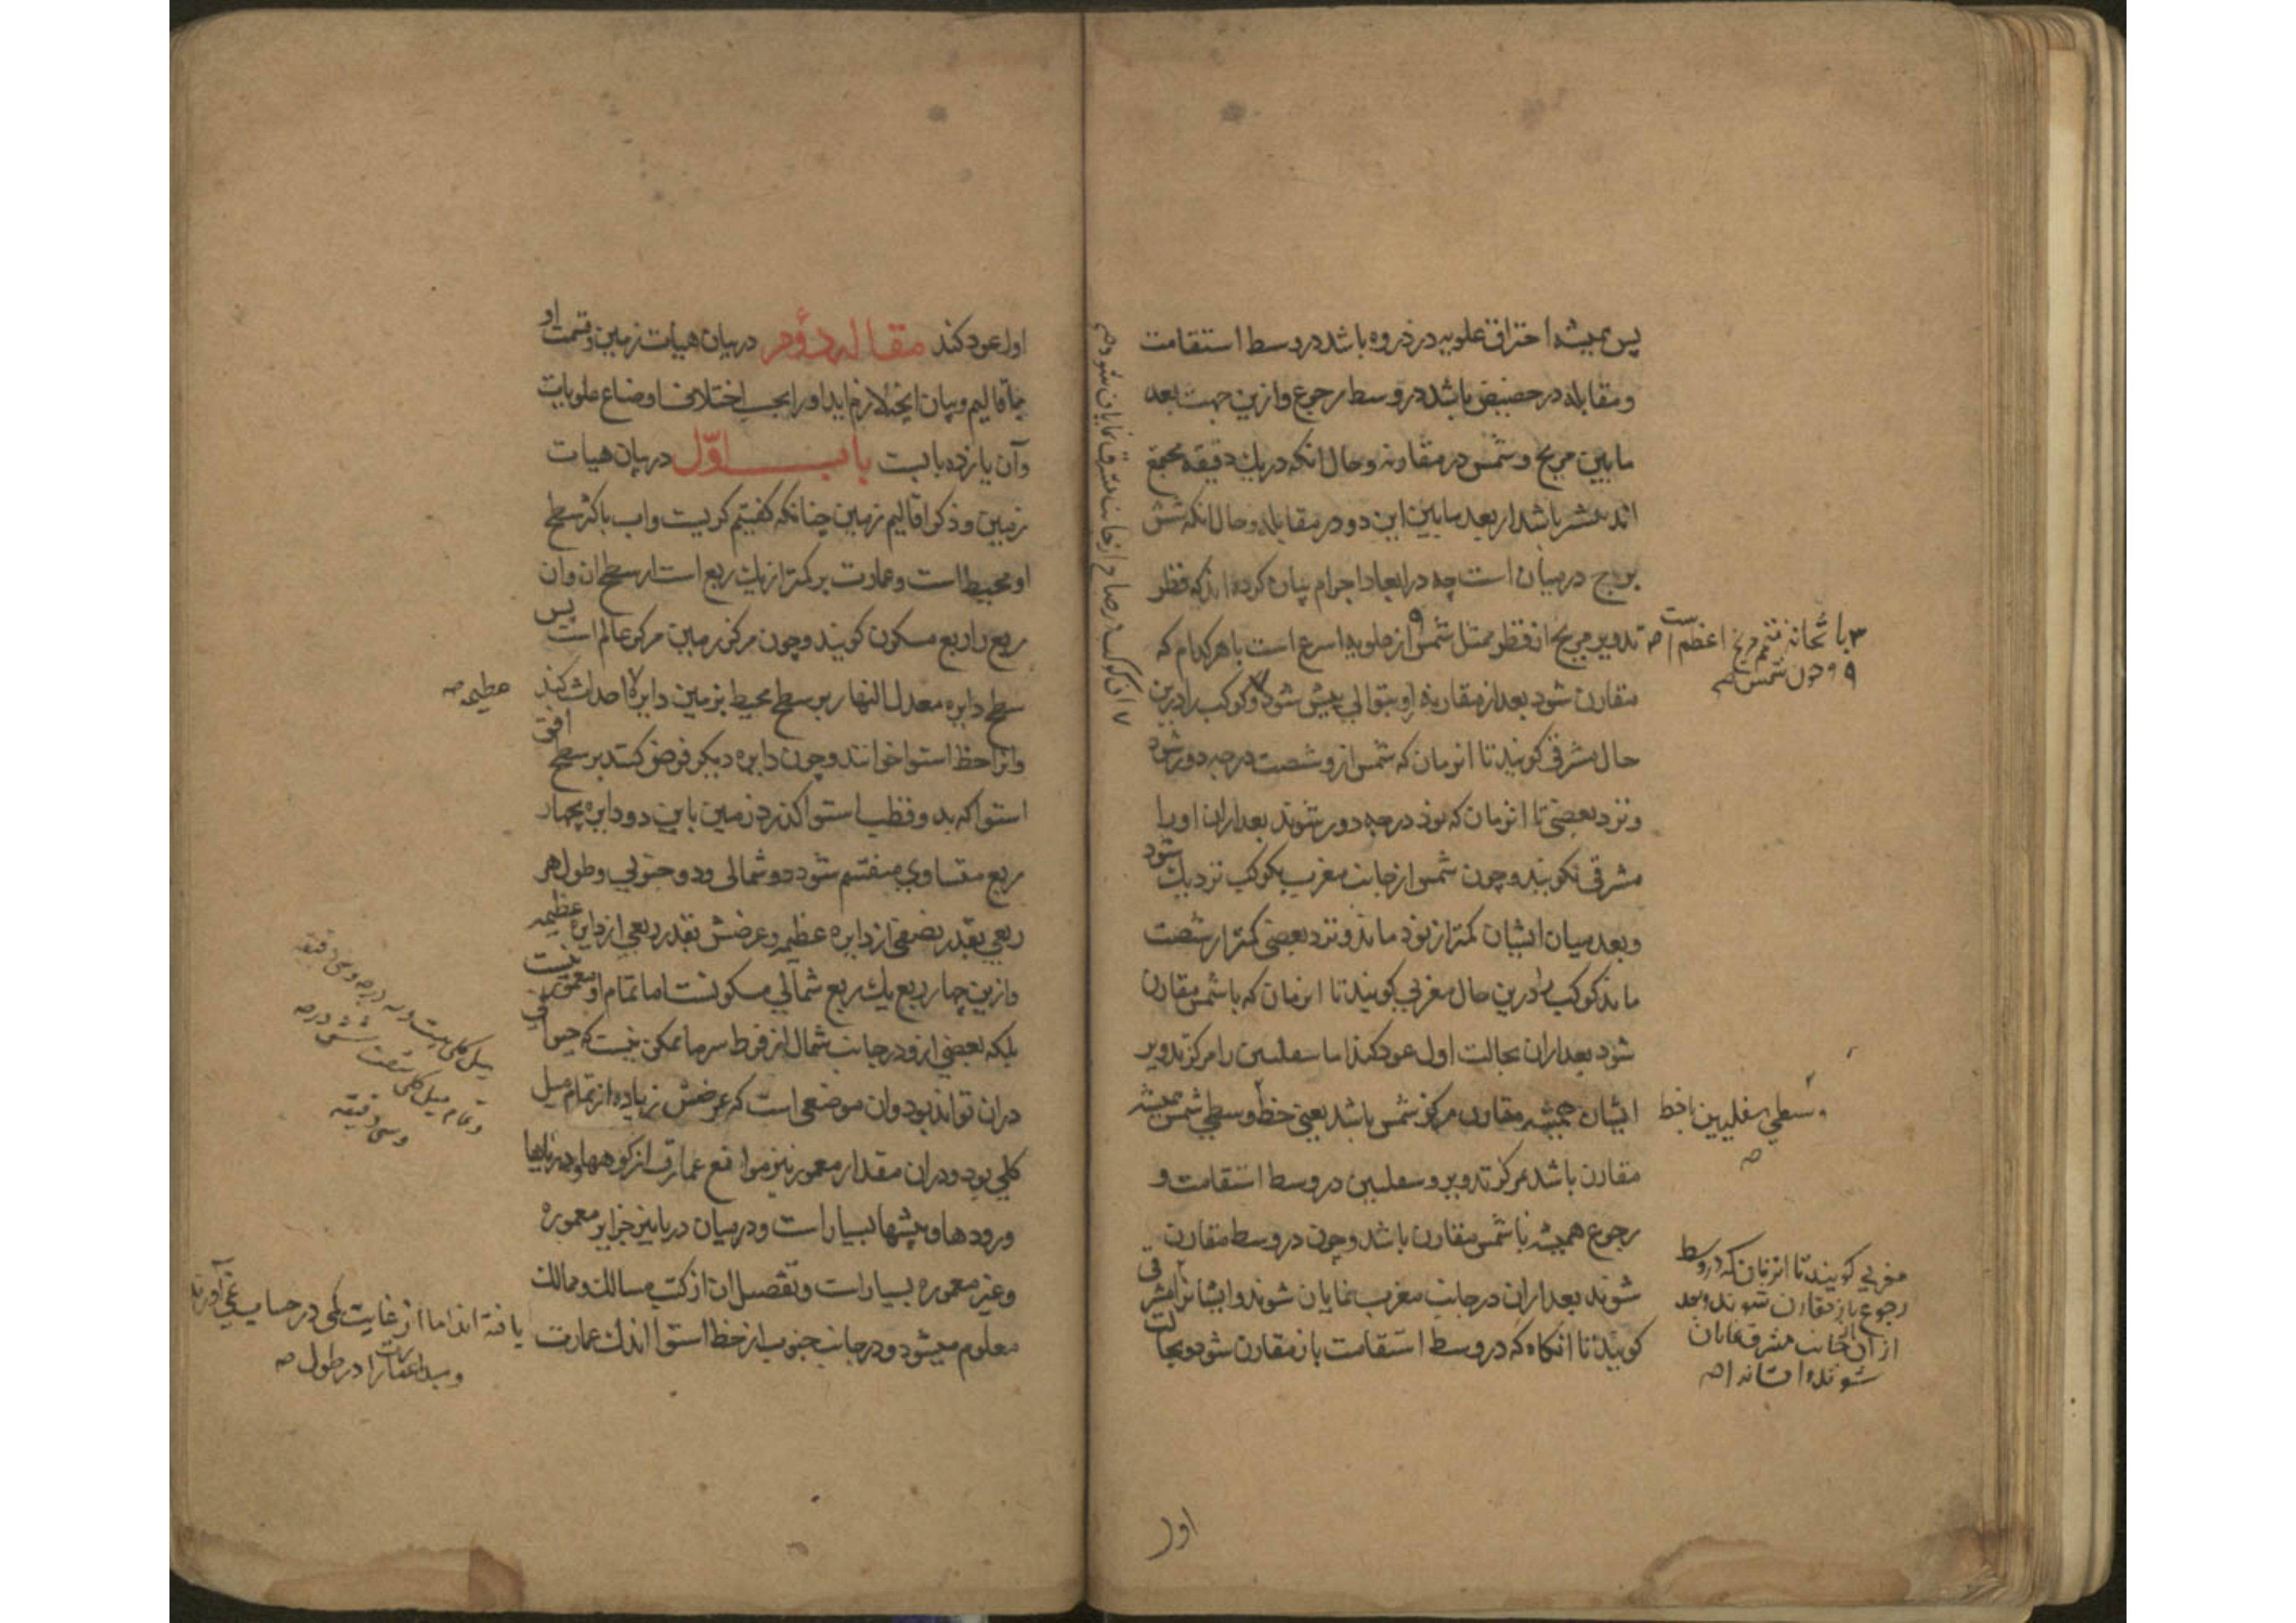 پس همیشه احتراق علویه در ذروه باشد در وسط استقامت
و مقابله در حضیض باشد در وسط رجوع و ازین جهت بعد
مابین مریخ و شمس در مقارنه و حال آنکه در یک دقیقه مجتمع
اند بیشتر باشد از بعد مابین این دو در مقابله و حال آنکه شش
برج در میان است چه در ابعاد اجرام بیان کرده اند که قطر
تدویر مریخ از قطر ممثل شمس از علویه اسرع است با هر کدام که
مقارن شود بعد از مقارنه او بتوالی پیش شود و کوکب را درین
حال مشرقی گویند تا آنزمان که شمس ازو شصت درجه دور شود
و نزد بعضی تا آنزمان که نود درجه دور شوند بعد از آن او را
مشرقی نگویند و چون شمس از جانب مغرب بکوکب نزدیک شود
و بعد میان ایشان کمتر از نود ماند و نزد بعضی کمتر از شصت
ماند کوکب را درین حال مغربی گویند تا آنزمان که با شمس مقارن
شود بعد از آن بحالت اول عود کند اما سفلیین را مرکز تدویر
ایشان همیشه مقارن مرکز شمس باشد یعنی خط وسطی شمس همیشه
مقارن باشد مرکز تدویر و سفلیین در وسط استقامت و
رجوع همیشه با شمس مقارن باشد و چون در وسط مقارن
شوند بعد از آن در جانب مغرب نمایان شوند و ایشانرا مشرقی
گویند تا آنگاه که در وسط استقامت باز مقارن شود و بحالت
اعظم است
و دون شمس
وسطی سفلیین با خط
مغربی گویند تا آنزمان که در وسط
رجوع باز مقارن شوند و بعد
از آن از جانب مشرق نمایان
شوند و ایشانرا
اول
اول عود کند مقاله دوم در بیان هیأت زمین و قسمت او
باقالیم و بیان آنچه لازم آید او را بحسب اختلاف اوضاع علویات
و آن یازده بابست باب اوّل در بیان هیات
زمین و ذکر اقالیم زمین چنانکه گفتیم کریست و آب باکثر سطح
او محیط است و عمارت بر کمتر از یک ربع است از سطح آن و آن
ربع را ربع مسکون گویند و چون مرکز زمین مرکز عالم است پس
سطح دایره معدل النهار بر سطح محیط بزمین دایره احداث کند
و آنرا خط استوا خوانند و چون دایره دیگر فرض کنند بر سطح افق
استوا که بدو قطب استوا گذرد زمین باین دو دایره بچهار
ربع متساوی منقسم شود دو شمالی و دو جنوبی و طول هر
ربعی بقدر نصفی از دایره عظیمه و عرضش بقدر ربعی از دایره عظیمه
و ازین چهار ربع یک ربع شمالی مسکونست اما تمام او معمور نیست
بلکه بعضی ازو در جانب شمال از فرط سرما ممکن نیست که حیوانی
در آن تواند بود و آن موضعی است که عرضش زیاده از تمام میل
کلی بود و در آن مقدار معمور نیز مواقع عمارت از کوهها و دریاها
و رودها و بیشها بسیار است و در میان دریا نیز جزایر معموره
و غیر معموره بسیار است و تفصیل آن از کتب مسالک و ممالک
معلوم میشود و در جانب جنوب از خط استوا اندک عمارت
عظیمه
میل کلی بیست و سه درجه و سی دقیقه
و تمام میل کلی شصت و شش درجه
و سی دقیقه
یافته اند اما از غایت کمی در حساب نمی آورند
و مبداء عمارت را در طول